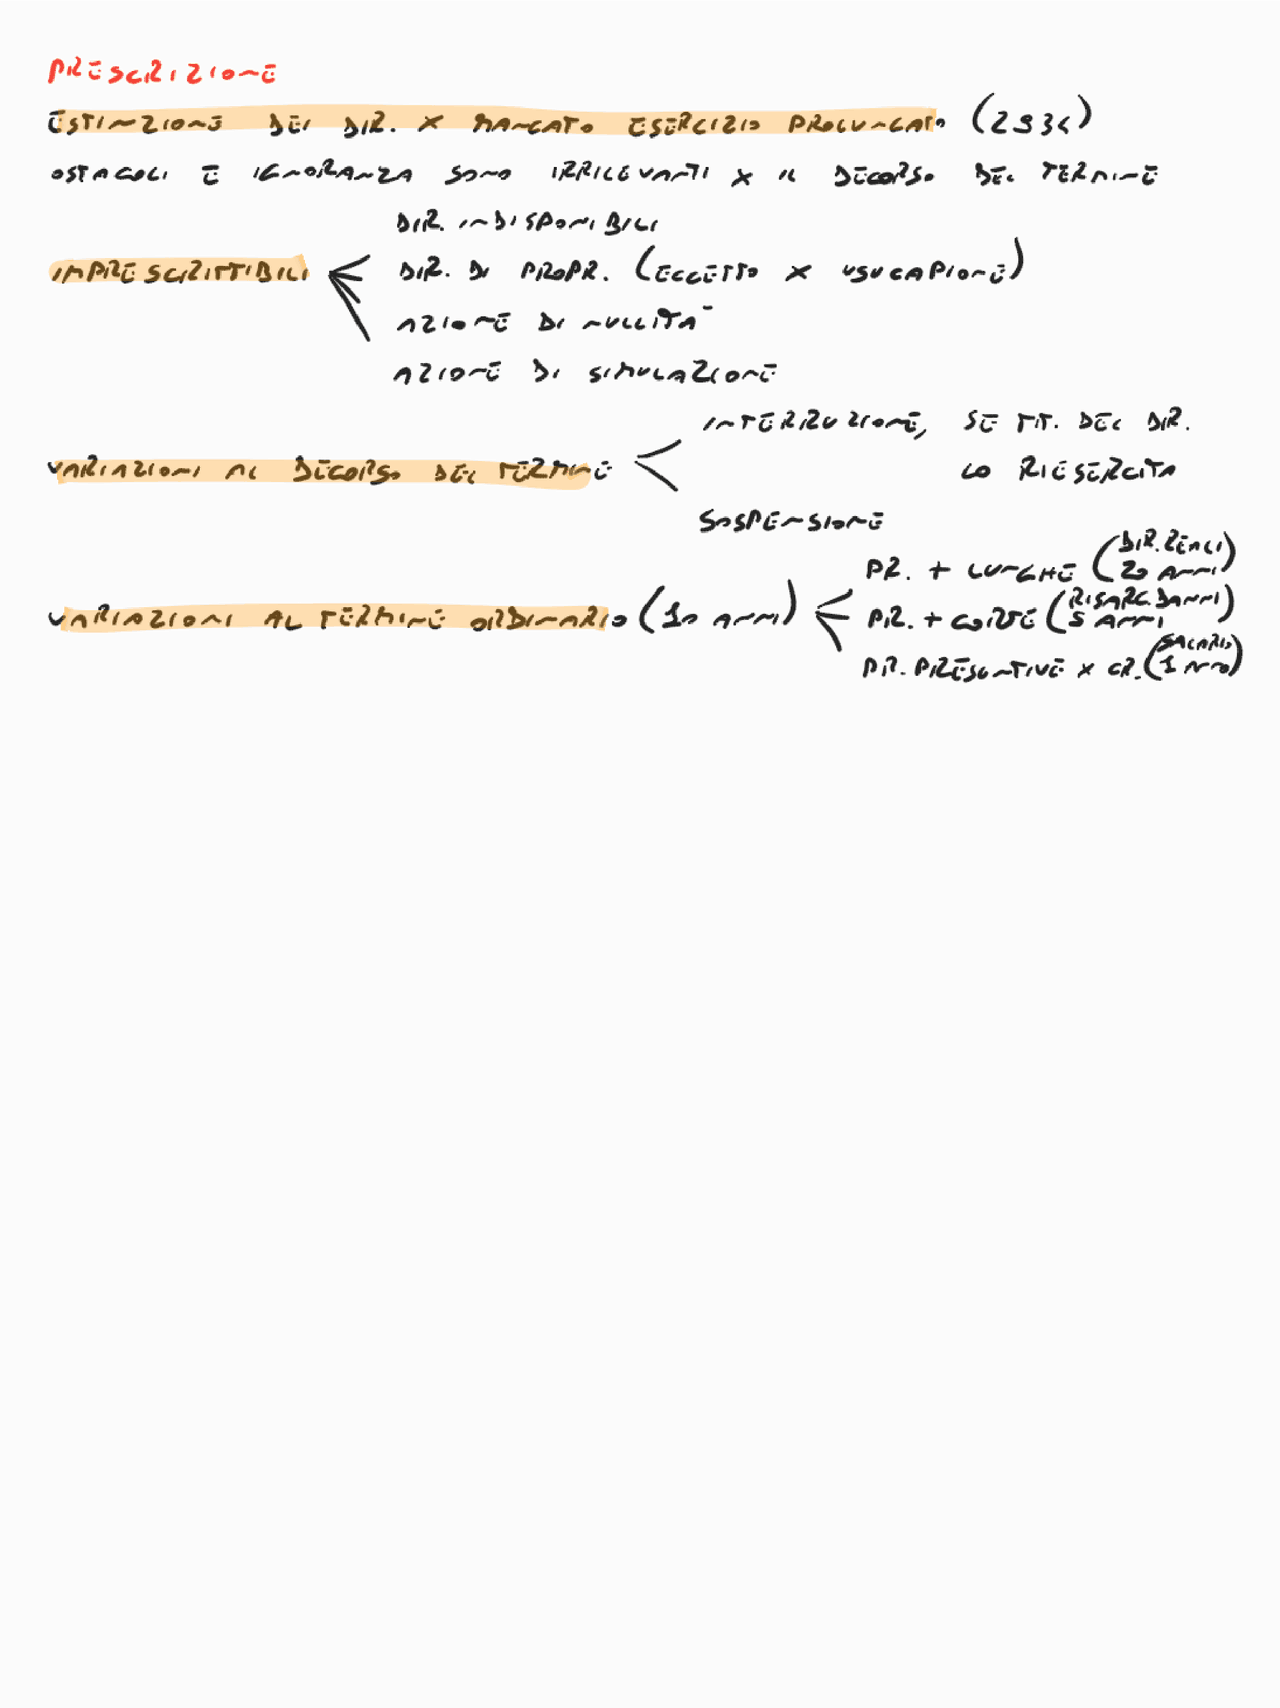 PRESCRIZIONE
ESTINZIONE DEI DIR. X MANCATO ESERCIZIO PROLUNGATO (2934)
OSTACOLI E IGNORANZA SONO IRRILEVANTI X IL DECORSO DEL TERMINE
DIR. INDISPONIBILI
IMPRESCRITTIBILI DIR. DI PROPR. (ECCETTO X USUCAPIONE)
AZIONE DI NULLITÀ
AZIONE DI SIMULAZIONE
INTERRUZIONE, SE TIT. DEL DIR.
VARIAZIONI AL DECORSO DEL TERMINE LO RIESERCITA
SOSPENSIONE
PR. + LUNGHE (DIR. REALI 20 ANNI)
VARIAZIONI AL TERMINE ORDINARIO (10 ANNI) PR. + CORTE (RISARC. DANNI 5 ANNI)
PR. PRESUNTIVE X CR. (SALARIO 1 ANNO)